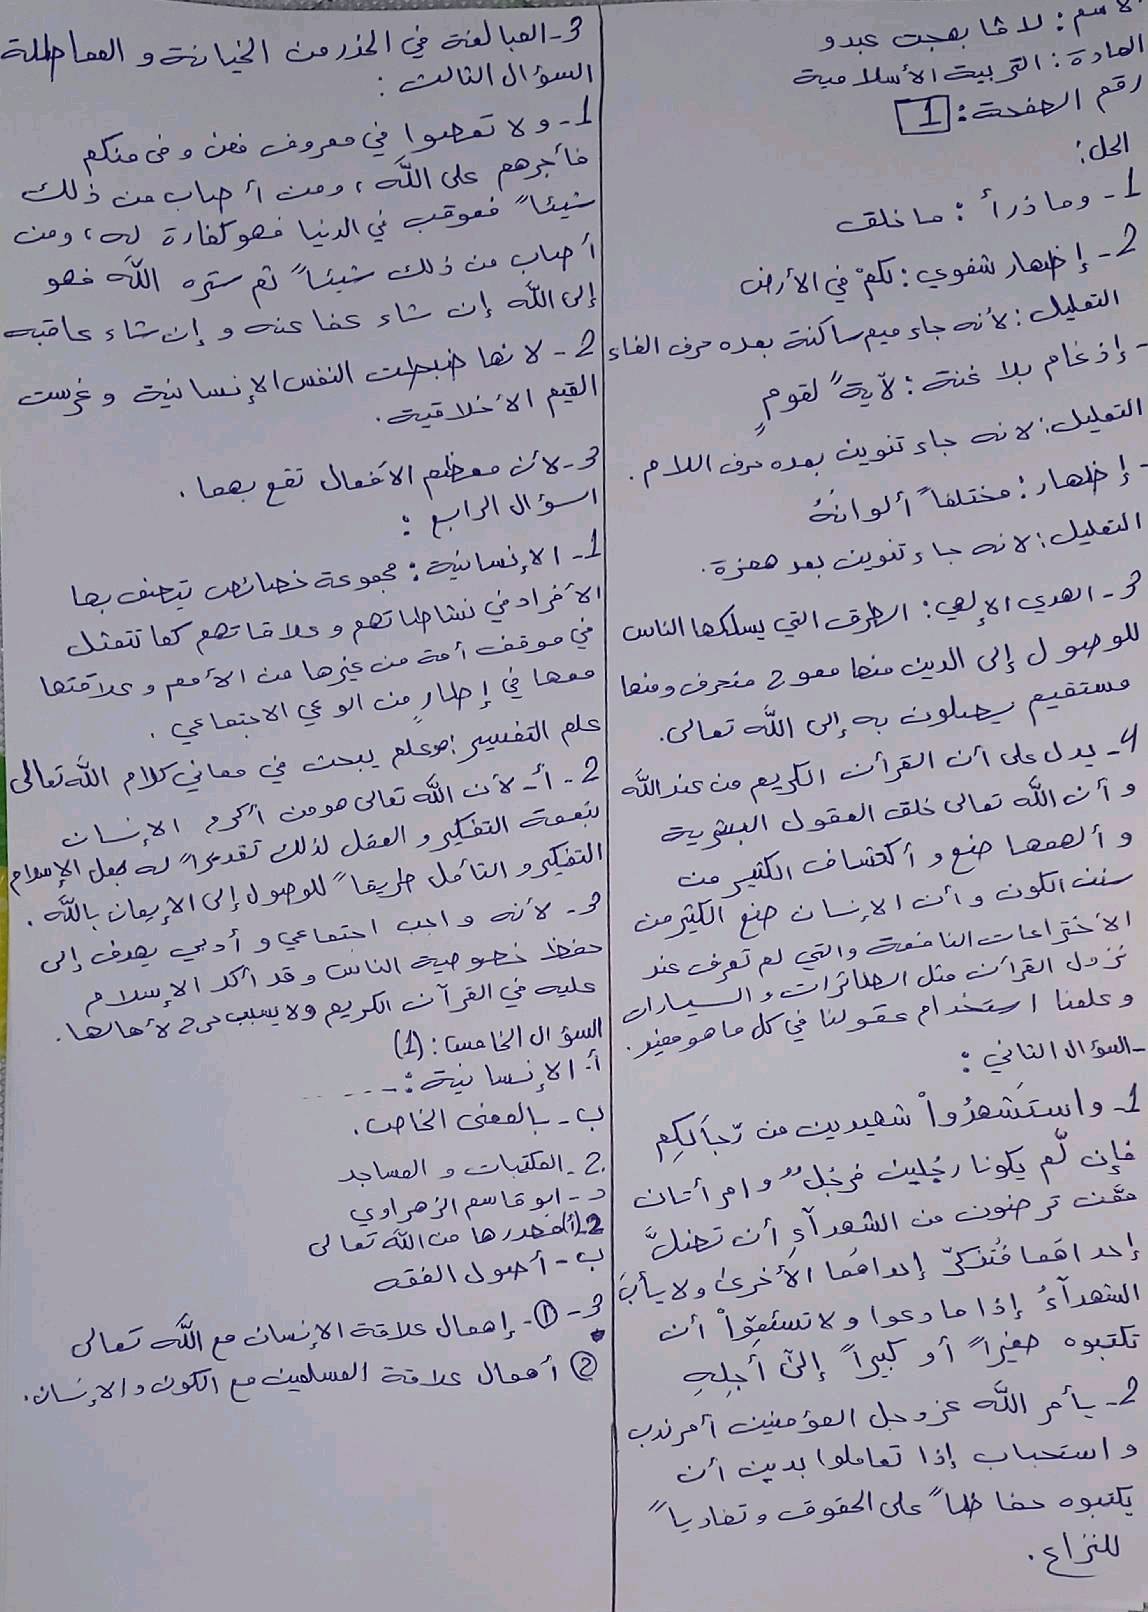 الاسم: لافا بهجت عبدو
المادة: التربية الأسلامية
رقم الصفحة: 1
الحل:
1- وما ذرأ: ما خلق
2- إظهار شفوي: لكمْ في الأرض
التعليل: لأنه جاء ميم ساكنة بعده حرف الفاء
- إذغام بلا غنة: لآيةً لقومٍ
التعليل: لانه جاء تنوين بعده حرف اللام.
- إظهار: مختلفاً ألوانُهُ
التعليل: لانه جاء تنوين بعد همزة.
3- الهدي الإلهي: الطرق التي يسلكها الناس
للوصول إلى الدين منها معوج منحرف ومنها
مستقيم يصلون به إلى الله تعالى.
4- يدل على أن القرأن الكريم من عند الله
و أن الله تعالى خلق العقول البشرية
و ألهمها صنع و أكتشاف الكثير من
سنن الكون و أن الإنسان صنع الكثير من
الأختراعات النافعة والتي لم تعرف عند
نزول القرأن مثل الطائرات و السيارات
و علمنا استخدام عقولنا في كل ما هو مفيد.
- السؤال الثاني:
1- واستَشهدُواْ شهيدين من رّجالكِم
فإن لّم يكونا رجُلين فرجُلٌ وامرأتان
ممَّن ترضون من الشهدآءِ أن تضلَّ
إحداهما فتُذكرّ إحداهُما الأخرىٰ ولا يأبَ
الشهدآءُ إذا ما دعوا ولا تسئمواْ أن
تكتبوه صغيراً أو كبيراً إلىٰ أجلِهِ
2- يأمر الله عز وجل المؤمنين أمر ندب
و استحباب إذا تعاملوا بدين أن
يكتبوه حفاظاً على الحقوق و تفادياً
للنزاع.
3- المبالغة في الحذر من الخيانة و المماطلة
السؤال الثالث:
1- ولا تعصوا في معروف فمن وفى منكم
فأجرهم على الله، ومن أصاب من ذلك
شيئاً فعوقب في الدنيا فهو كفارة له، ومن
أصاب من ذلك شيئاً ثم ستره الله فهو
إلى الله إن شاء عفا عنه و إن شاء عاقبه
2- لانها ضبطت النفس الإنسانية و غرست
القيم الأخلاقية.
3- لأن معظم الأفعال تقع بهما.
اسؤال الرابع:
1- الإنسانية: مجموعة خصائص يتصف بها
الأفراد في نشاطاتهم و علاقاتهم كما تتمثل
في موقف أمة من غيرها من الأمم و علاقتها
معها في إطارٍ من الوعي الاجتماعي.
علم التفسير: هو علم يبحث في معاني كلام الله تعالى
2- أ- لأن الله تعالى هو من أكرم الإنسان
بنعمة التفكير و العقل لذلك تقديراً له جعل الإسلام
التفكير و التأمل طريقاً للوصول إلى الإيمان بالله.
3- لأنه واجب اجتماعي و أدبي يهدف إلى
حفظ خصوصية الناس و قد أكد الإسلام
عليه في القرآن الكريم ولا يسبب حرج لأهالها.
السؤال الخامس: (1)
أ. الإنسانية: ......
ب- بالمعنى الخاص.
2- المكتبات و المساجد
د- ابو قاسم الزهراوي
2- (أ) مصدرها من الله تعالى
ب- أصول الفقه
3- ①- إهمال علاقة الإنسان مع الله تعالى
② أهمال علاقة المسلمين مع الكون والإنسان.